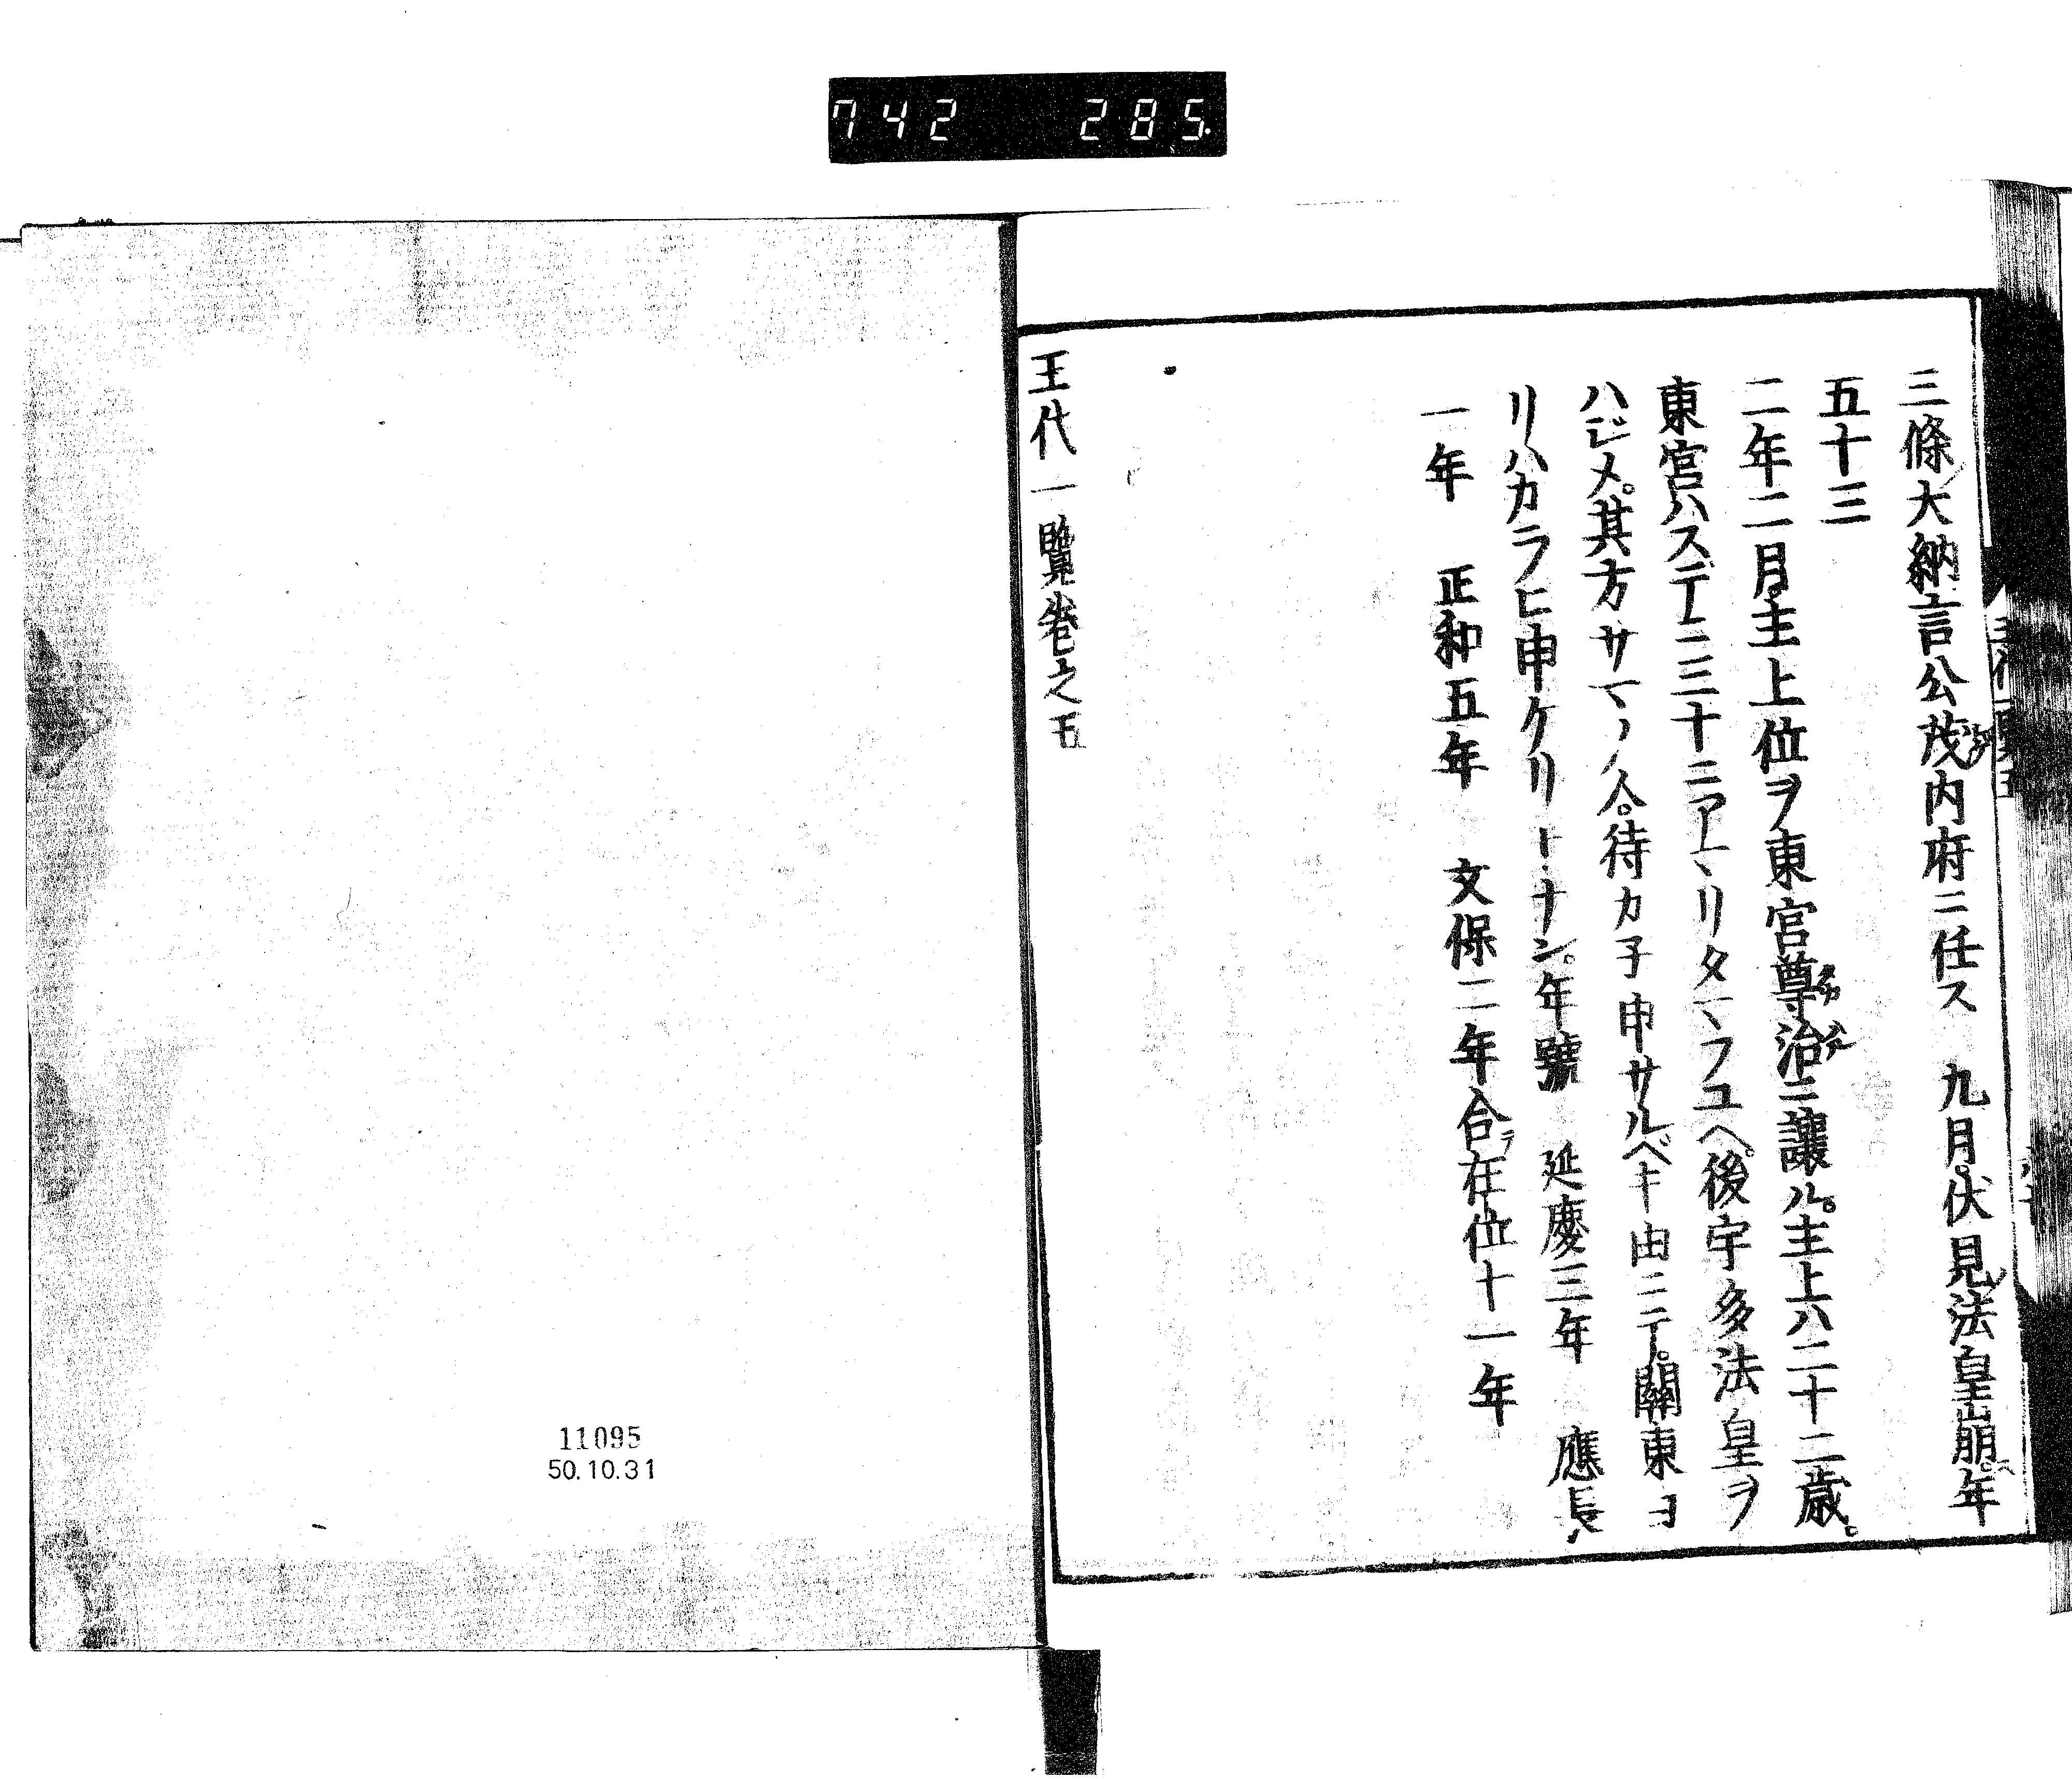 742 285
三條大納言公茂内府ニ任ス 九月伏見ノ法皇崩ス年
五十三
二年二月主上位ヲ東宮尊治ニ讓ル主上ハ二十二歳
東宮ハスデニ三十ニアマリタマフユヘ後宇多法皇ヲ
ハジメ其方サマノ人待カ子申サルベキ由ニテ關東ヨ
リハカラヒ申ケリトナン年號 延慶三年 應長
一年 正和五年 文保二年合テ在位十一年
王代一覽卷之五
11095
50.10.31